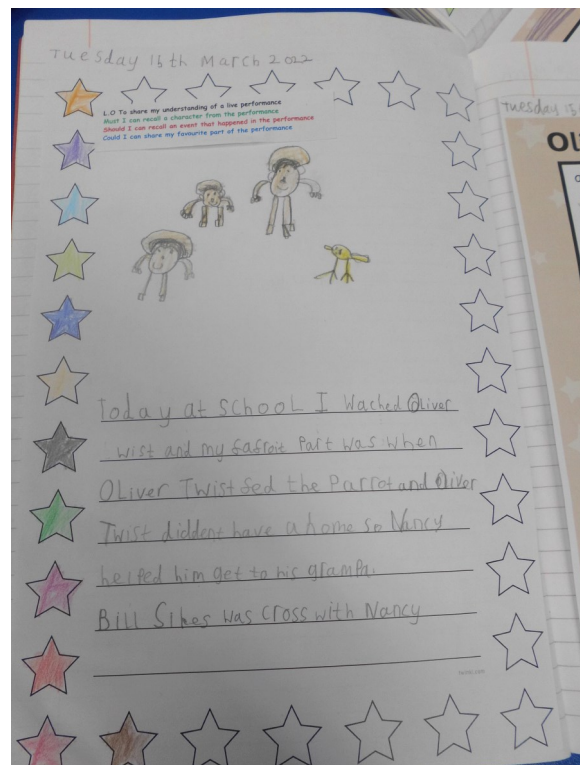 Tuesday 15th March 2022
L.O To share my understanding of a live performance
Must I can recall a character from the performance
Should I can recall an event that happened in the performance
Could I can share my favourite part of the performance
Today at SchooL I wached Oliver
wist and my fafroit Part was when
OLiver Twist fed the Parrot and Oliver
Twist diddent have a home so Nancy
helped him get to his grampa.
BiLL Sikes was cross with Nancy
Tuesday 15
OL